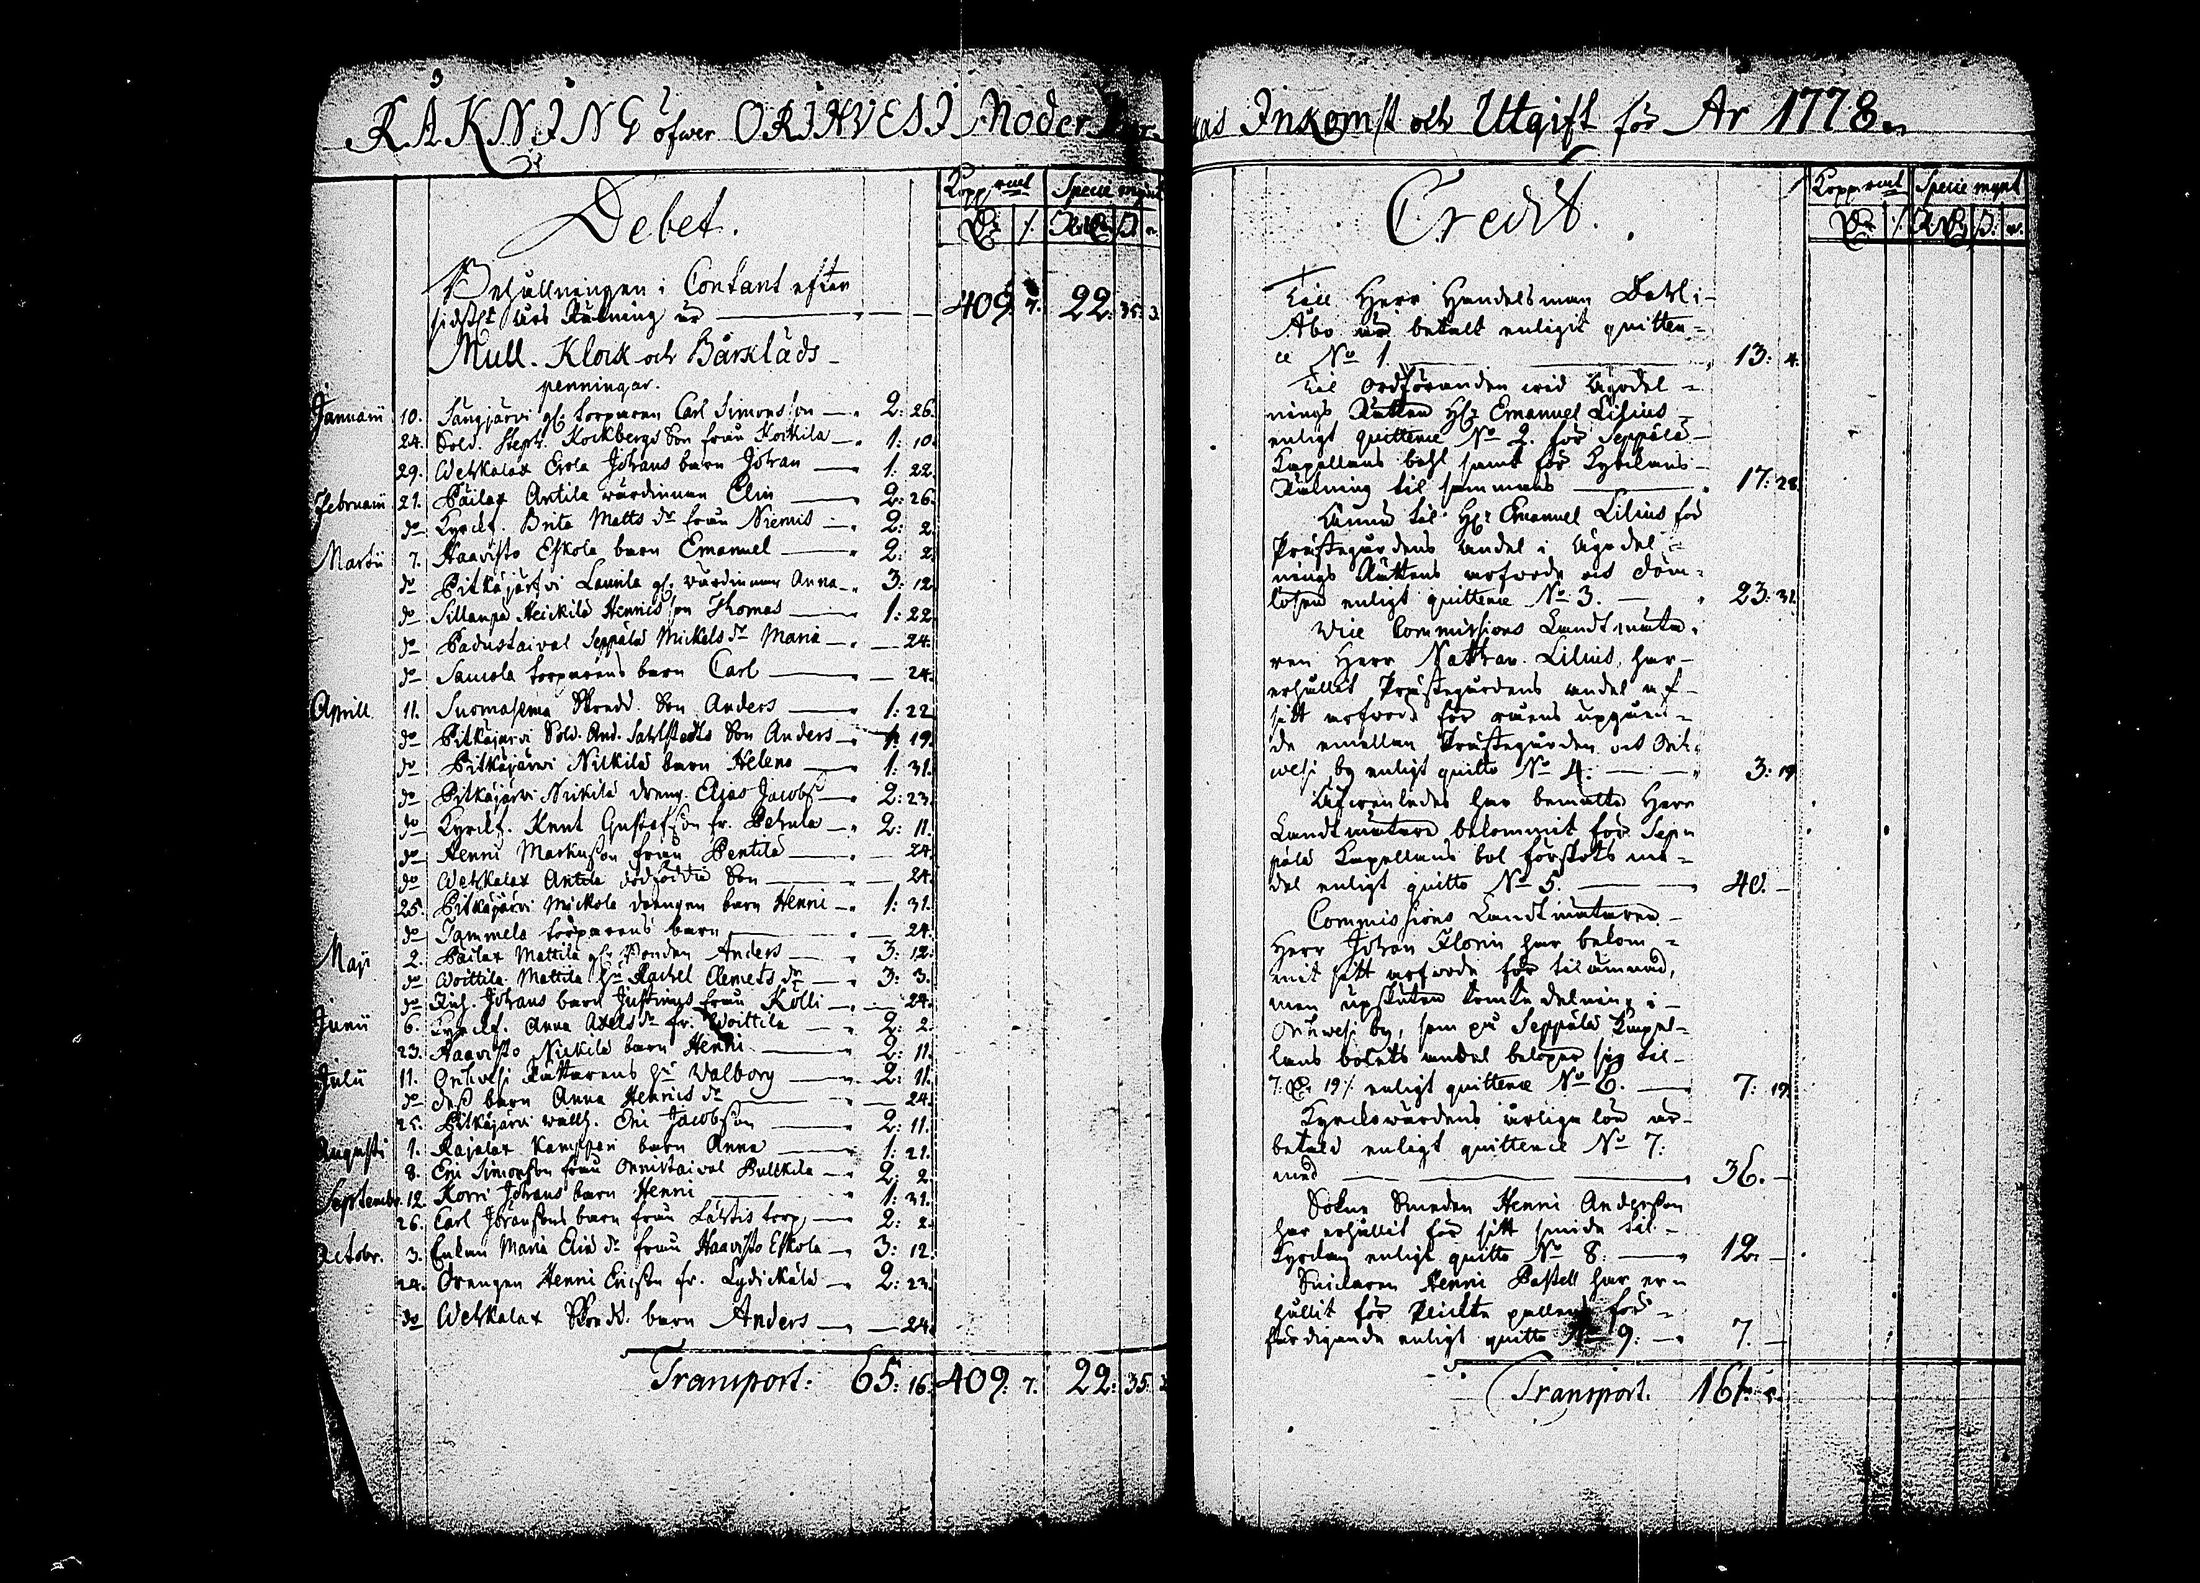 RÄKNING öfwer ORIHVESI Moder Kyr
kas Inkomst och Utgift för År 1778.
Debet.
Kopp. mt Specie mynt
Behållningen i Contant efter
sidsta års Räkning är 409. 7. 22. 35. 3.
Mull. Klock och Bårkläds
penningar.
Januarii 10. Sångjärvi gl. torparen Carl Simonsson 2: 26.
24. Sold. Steph. Kockbergs Son från Koikila 1: 10.
29. Wehkalax Erola Johans barn Johan 1: 22.
Februarii 21. Päilax Antila wärdinnan Elin 2: 26.
do Kyrckf. Brita Matts dr från Niemis 2: 2.
Martii 7. Haavisto Eskola barn Emanuel 2: 2.
do Pitkäjärfvi Laurila gl. wärdinnan Anna 3: 12.
do Sillanpä Heickilä Hennisson Thomas 1: 22.
do Padustaival Seppälä Mickels dr Maria 24.
do Samola torparens barn Carl 24.
Aprill 11. Suomasema Skredd. Son Anders 1: 22.
do Pitkäjärvi Sold. And. Sahlstedts Son Anders 1: 19.
do Pitkäjärvi Nikkilä barn Helena 1: 31.
do Pitkäjärvi Nikkilä dreng. Elias Jacobss. 2: 23.
do Kyrckf. Knut Gustafsson fr. Pehula 2: 11.
do Henni Markusson från Pentilä 24.
do Wehkalax Antila dödfödde Son 24.
25. Pitkäjärvi Mickola drängen barn Henni 1: 31.
do Tammela torparens barn 24.
Maji 2. Päilax Mattila gl. Bonden Anders 3: 12.
do Woittila Mattila Hu Rachel Clemets dr 3: 3.
do Inh. Johans barn Justinus från Kolli 24.
Junii 6. Kyrckf. Anna Axels dr fr. Woittila 2: 2.
23. Haavisto Nickilä barn Henni 2: 11.
Julii 11. Orihvesi Rättarens Hu Walborg 2: 11.
do dess barn Anna Hennis dr 24.
25. Pitkäjärvi wallh. Eric Jacobsson 2: 11.
Augusti 1. Rajalax Kamppari barn Anna 1: 21.
8. Eric Simonsson från Onnistaival Pullkila 2. 2
Septembr. 12. Korri Johans barn Henni 1: 31.
26. Carl Johanssons barn från Lähtis torp 2: 2.
Octobr. 3. Enkan Maria Erics dr från Haavisto Eskola 3: 12.
24. Drengen Henni Ericsson fr. Lydickälä 2: 23.
do Wehkalax Skredd. barn Anders 24.
Transport: 65: 16. 409: 7. 22: 35. 3
Credit.
Kopp. mt Specie mynt
Till Herr Handelsman Dahl i
Åbo är betalt enligit quitten=
ce No 1 13: 4.
Til Ordföranden wid Ägodel=
nings Rätten Hr Emanuel Lilius
enligt quittence No 2. för Seppälä
Kapellans bohl samt för Kyrckans
Räkning til sammans 17: 28.
Ännu til Hr Emanuel Lilius för
Prästegårdens andel i Ägodel=
nings Rättens arfwode och dom=
lösen enligt quittence No 3. 23: 31.
Vice Commissions Landtmäta=
ren Herr Nathan. Lilius har
erhållit Prästegårdens andel af
sitt arfvode för råens upgåen=
de emellan Prästegården och Orih=
wesi by enligt quitto No 4. 3: 19
Äfwenledes har bemälte Herr
Landtmätare bekommit för Sep=
pälä Kapellans bol förskotsme=
del enligt quitto No 5. 40. -
Commissions Landtmätaren
Herr Johan Florin har bekom=
mit sitt arfvode för tilämnad,
men upskuten tomtedelning i
Orihwesi by, som på Seppälä Kapel=
lans bolets andel beloper sig til
7. D. 19 enligt quittence No 6. 7: 19.
Kyrckowärdens årliga lön är
betald enligt quittence No 7.
med 36. -
Sokne Smeden Henni Andersson
har erhållit för sitt smide til
Kyrckan enligt quitto No 8. 12. -
Snickaren Henni Pastell har er=
hållit för Plickte pallens för=
färdigande enligt quitto No 9. 7. -
Transport. 161.